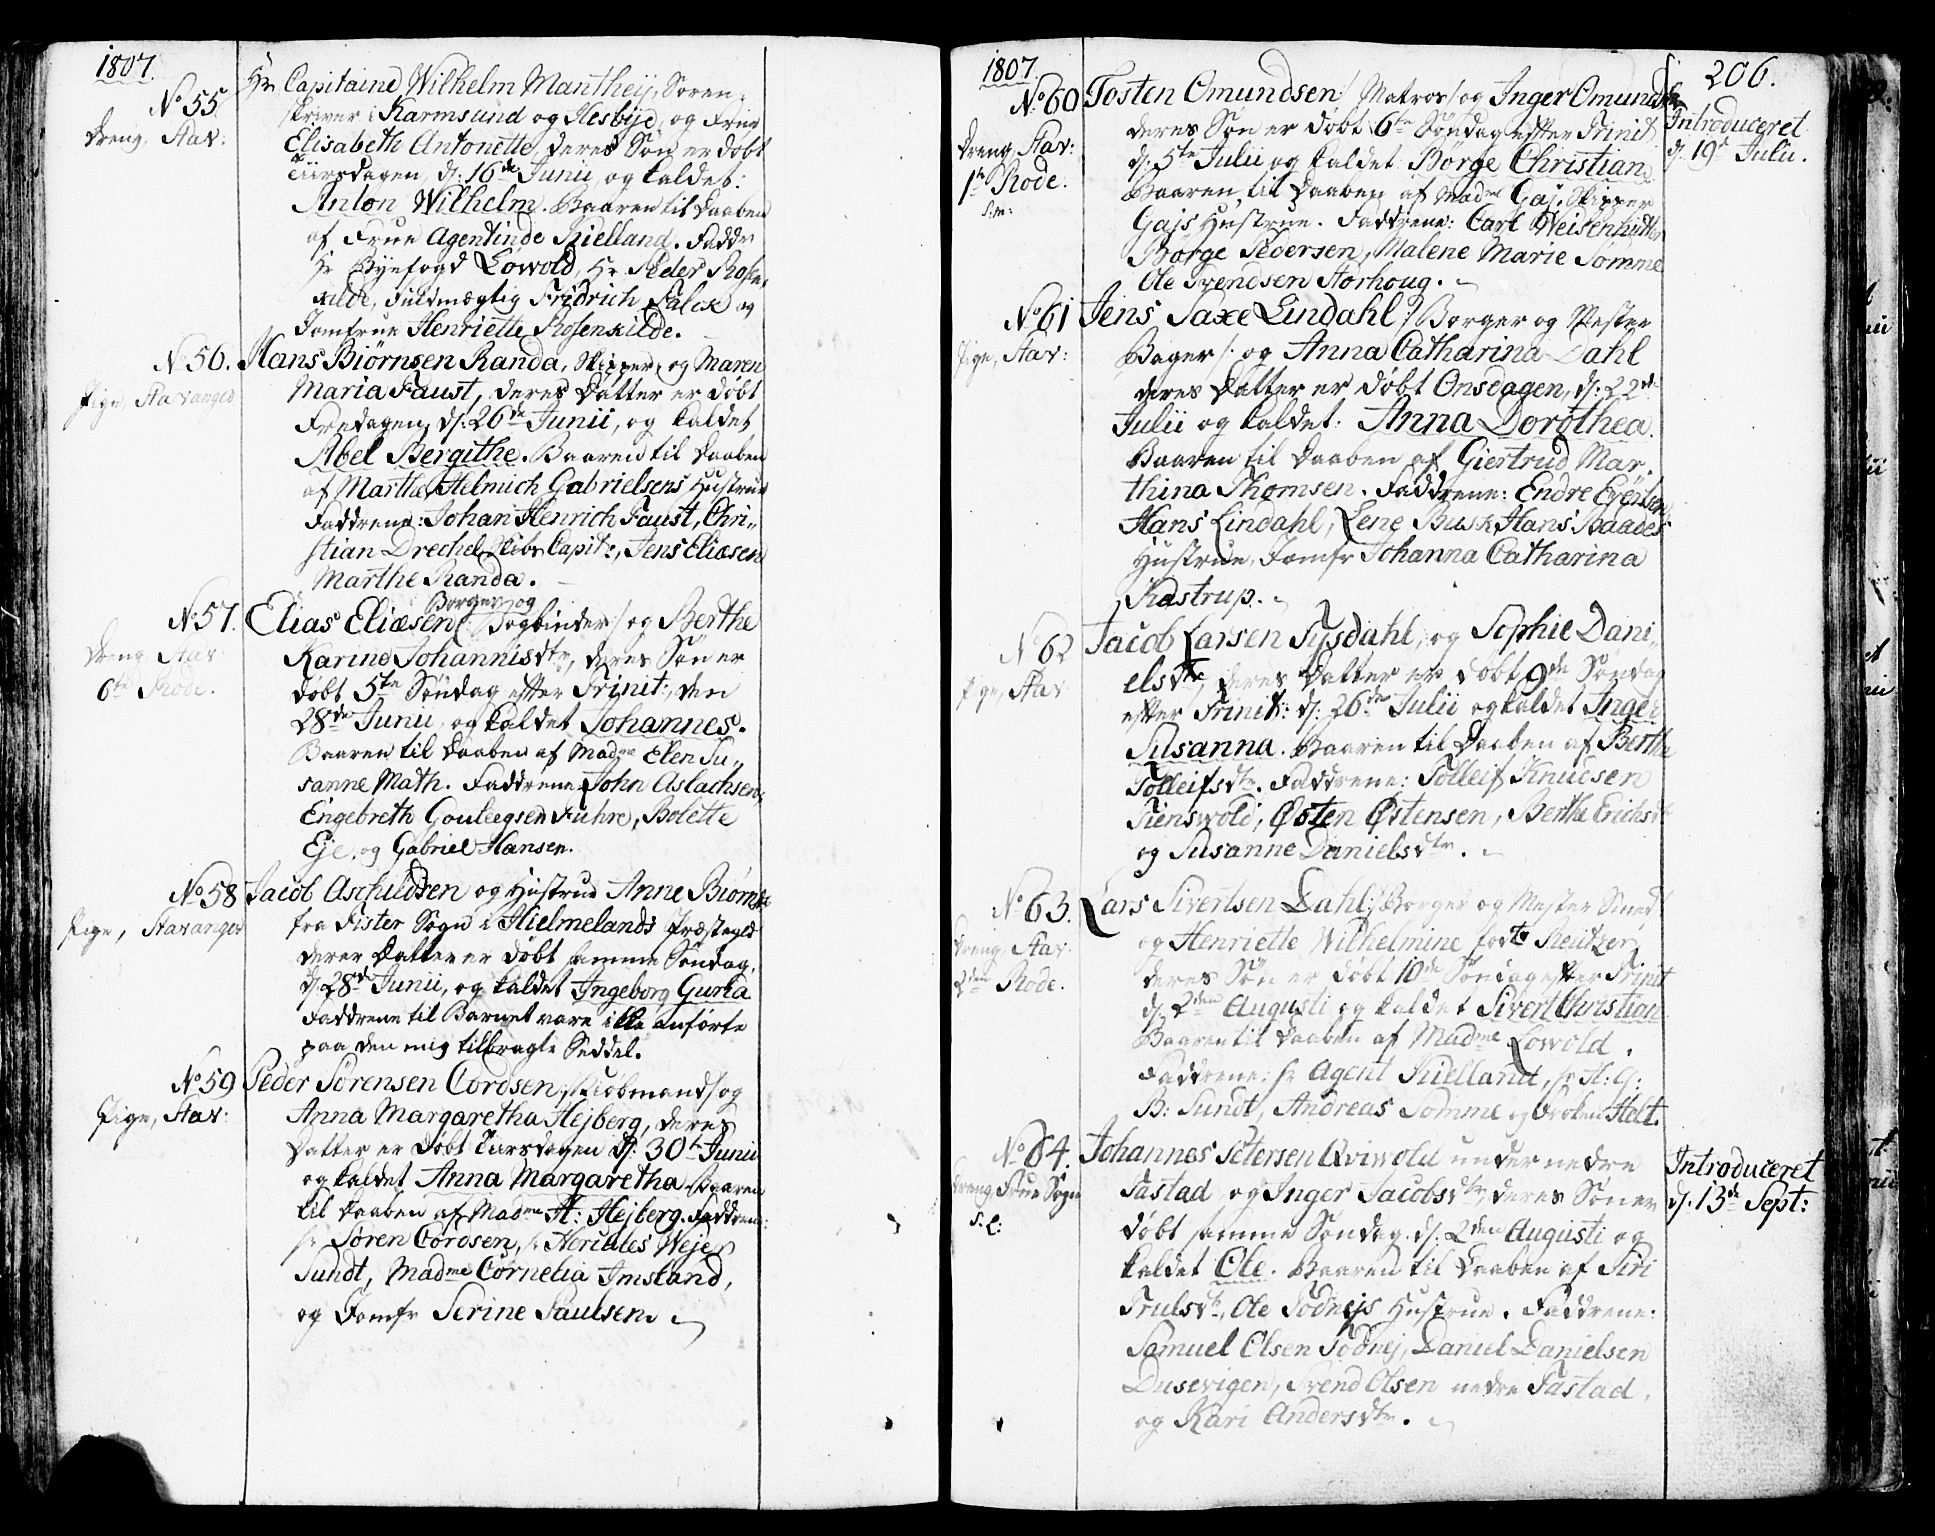 1807.
No 55.
Dreng, Stav:
Hr Capitaine Wilhelm Mantheij, Soren-
skriver i Karmsund og Hesbye, og Frue
Elisabeth Antonette, deres Søn er døbt
Tiirsdagen, d: 16de Junii, og kaldet:
Anton Wilhelm. Baaren til Daaben
af Frue Agentinde Kielland. Faddr
Hr Byefogd Lowold, Hr Peder Rosen-
kilde, Fuldmægtig Fridrich Falck og
Jomfrue Henriette Rosenkilde.
No 56.
Pige, Stavanger
Hans Biørnsen Randa, Skipper, og Maren
Maria Faust, deres Datter er døbt
Fredagen, d: 26de Junii, og kaldet
Abel Bergithe. Baaren til Daaben
af Marthe, Helmich Gabrielsens Hustrue
Faddrene: Johan Henrich Faust, Chri-
stian Drechel Skibs Capit:, Jens Eliæsen
Marthe Randa.
No 57.
Dreng, Stav
6te Rode.
Borger og
Elias Eliæsen /: Bogbinder / og Berthe
Karine Johannisdtr, deres Søn er
døbt 5te Søndag efter Trinit:, den
28de Junii, og kaldet Johannes.
Baaren til Daaben af Madme Elen Su-
sanne Math. Faddrene John Aslachsen,
Engebreth Gouleegsen Fuhre, Bolette
Eje, og Gabriel Hansen.
No 58
Pige, Stavanger
Jacob Aschildsen og Hustrue Anne Biørnsdr
fra Fister Sogn i Hielmelands Præstegld
derer Datter er døbt samme Søndag,
d: 28de Junii, og kaldet Ingeborg Guria
Faddrene til Barnet vare ikke anførte
paa den mig tilbragte Seddel.
No 59
Pige, Stav:
Peder Sørensen Cordsen, /: Kiøbmand / og
Anna Margaretha Hejberg, deres
Datter er døbt Tiirsdagen d: 30te Junii
og kaldet Anna Margaretha Baaren
til Daaben af Madme H: Hejberg. Faddrene:
Hr Søren Cordsen, Hr Hercules Weyer
Sundt, Madme Cornelia Imsland,
og Jomfr Serine Paulsen.
1807
No 60
Dreng, Stav:
1te Rode.
S:m:
Tosten Omundsen / Matros / og Inger Omundsdr
deres Søn er døbt 6te Søndag efter Trinit
d: 5te Julii og kaldet: Børge Christian
Baaren til Daaben af Madme Gaj, Skipper
Gajs Hustrue. Faddrene: Carl Weisenhütter
Børge Pedersen, Malene Marie Somme
Ole Svendsen Storhoug.
206.
Introduceret
d: 19de Julii.
No 61
Pige, Stav:
Jens Saxe Lindahl /: Borger og Mester
Bager /: og Anna Catharina Dahl
deres Datter er døbt Onsdagen, d: 22de
Julii og kaldet: Anna Dorothea.
Baaren til Daaben af Giertrud Mar-
thina Thomsen. Faddrene: Endre Evertsen
Hans Lindahl, Lene Busk, Hans Baades
Hustrue, Jomfr Johanna Catharina
Kastrup.
No 62
Pige, Stav
Jacob Larsen Sysdahl, og Sophie Dani-
elsdtr, deres Datter er døbt 9de Søndag
efter Trinit: d: 26de Julii og kaldet Inger
Susanna. Baaren til Daaben af Berthe
Tolleifsdtr. Faddrene: Tolleif Knudsen
Tienswold, Østen Østensen, Berthe Erichsdtr
og Susanne Danielsdtr.
No 63.
Dreng, Stav
2den Rode.
Lars Sivertsen Dahl /: Borger og Mester Smed
og Henriette Wilhelmine fødte Reützer,
deres Søn er døbt 10de Søndag efter Trinit
d: 2den Augusti og kaldet Sivert Christian
Baaren til Daaben af Madme Lowold.
Faddrene: Hr Agent Kielland, Hr H: G:
B: Sundt, Andreas Somme og Frøken Holt.
No 64.
Dreng, Frue Sogn
S: l:
Johannes Petersen Qviwold under nedre
Tastad, og Inger Jacobsdtr, deres Søn er
døbt samme Søndag d: 2den Augusti og
kaldet Ole. Baaren til Daaben af Siri
Trulsdtr, Ole Todnejs Hustrue. Faddrene:
Samuel Olsen Todnej, Daniel Danielsen
Dusevigen, Svend Olsen nedre Tastad,
og Kari Andersdtr.
Introduceret
d: 13de Sept: